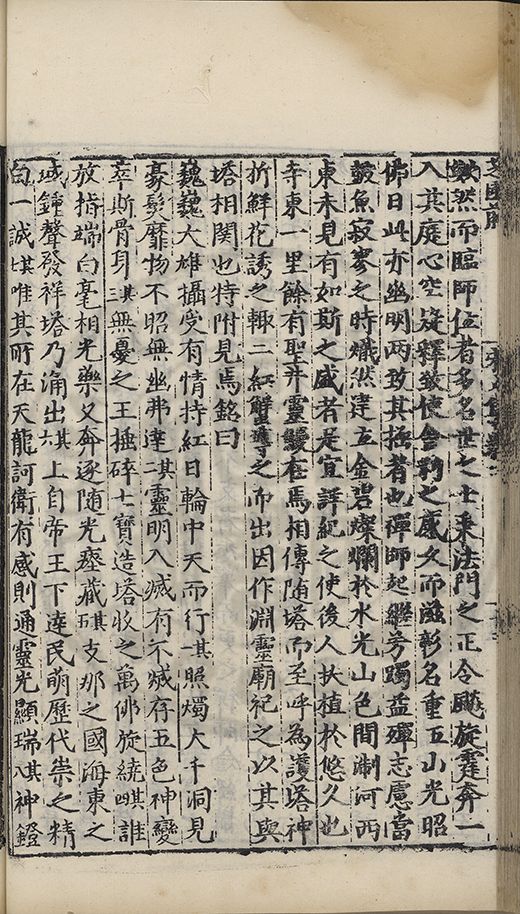 然而臨師位者多名世之士乘法門之正令飈旋霆奔一
入其庭心空旋釋致使舍利之感久而滋彰名重五山光昭
佛日此亦幽明兩致其極者也禪師起繼芳躅益殫志慮當
鼓魚寂寥之時熾然建立金碧燦爛於水光山色間淛河西
東未見有如斯之盛者是宜詳紀之使後人扶植於悠久也
寺東一里餘有聖井靈鰻在焉相傳随塔而至呼為護塔神
折鮮花誘之輙二紅蟹導之而出因作淵靈廟祀之以其與
塔相関也特附見焉銘曰
巍巍大雄攝受有情持紅日輪中天而行其一照燭大千洞見
豪髮靡物不昭無幽弗達其二靈明入滅有不滅存五色神變
萃斯骨身其三無憂之王捶碎七寶造塔收之萬佛旋繞其四誰
放指端白毫相光藥叉奔逐随光瘞藏其五支那之國海東之
城鐘聲發祥塔乃涌出其六上自帝王下逮民萌歷代崇之精
白一誠其七唯其所在天龍訶衛有感則通靈光顯瑞其八神鐙